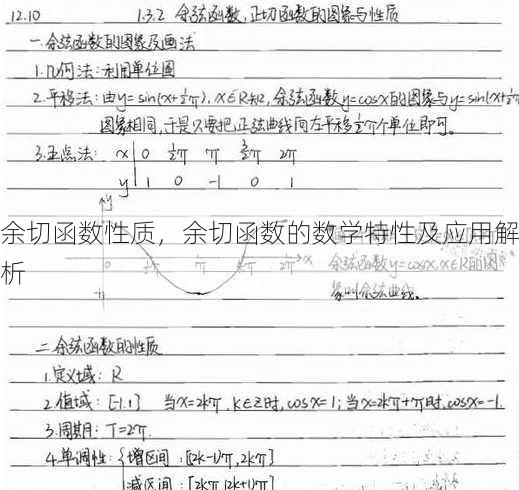 12.10 1.3.2 余弦函数,正切函数的图象与性质
一.余弦函数的图象及画法
1.几何法:利用单位圆
2.平移法:由y=sin(x+½π),x∈R知2,余弦函数y=cosx的图象与y=sin(x+½π
图象相同,于是只要把正弦曲线向左平移½π个单位即可。
3.五点法: x 0 ½π π 3/2π 2π
y 1 0 -1 0 1
y
余切函数性质，余切函数的数学特性及应用解
0 ½π π 3/2π 2π x 余弦函数y=cosx,x∈R的图
析
-1 象叫余弦曲线。
二.余弦函数的性质
1.定义域: R
2.值域: [-1.1] 当x=2kπ,k∈Z时,cosx=1;当x=2kπ+π时,cosx=-1.
3.周期: T=2π.
4.单调性:{增区间:[(2k-1)π,2kπ]
减区间:[2kπ,(2k+1)π]